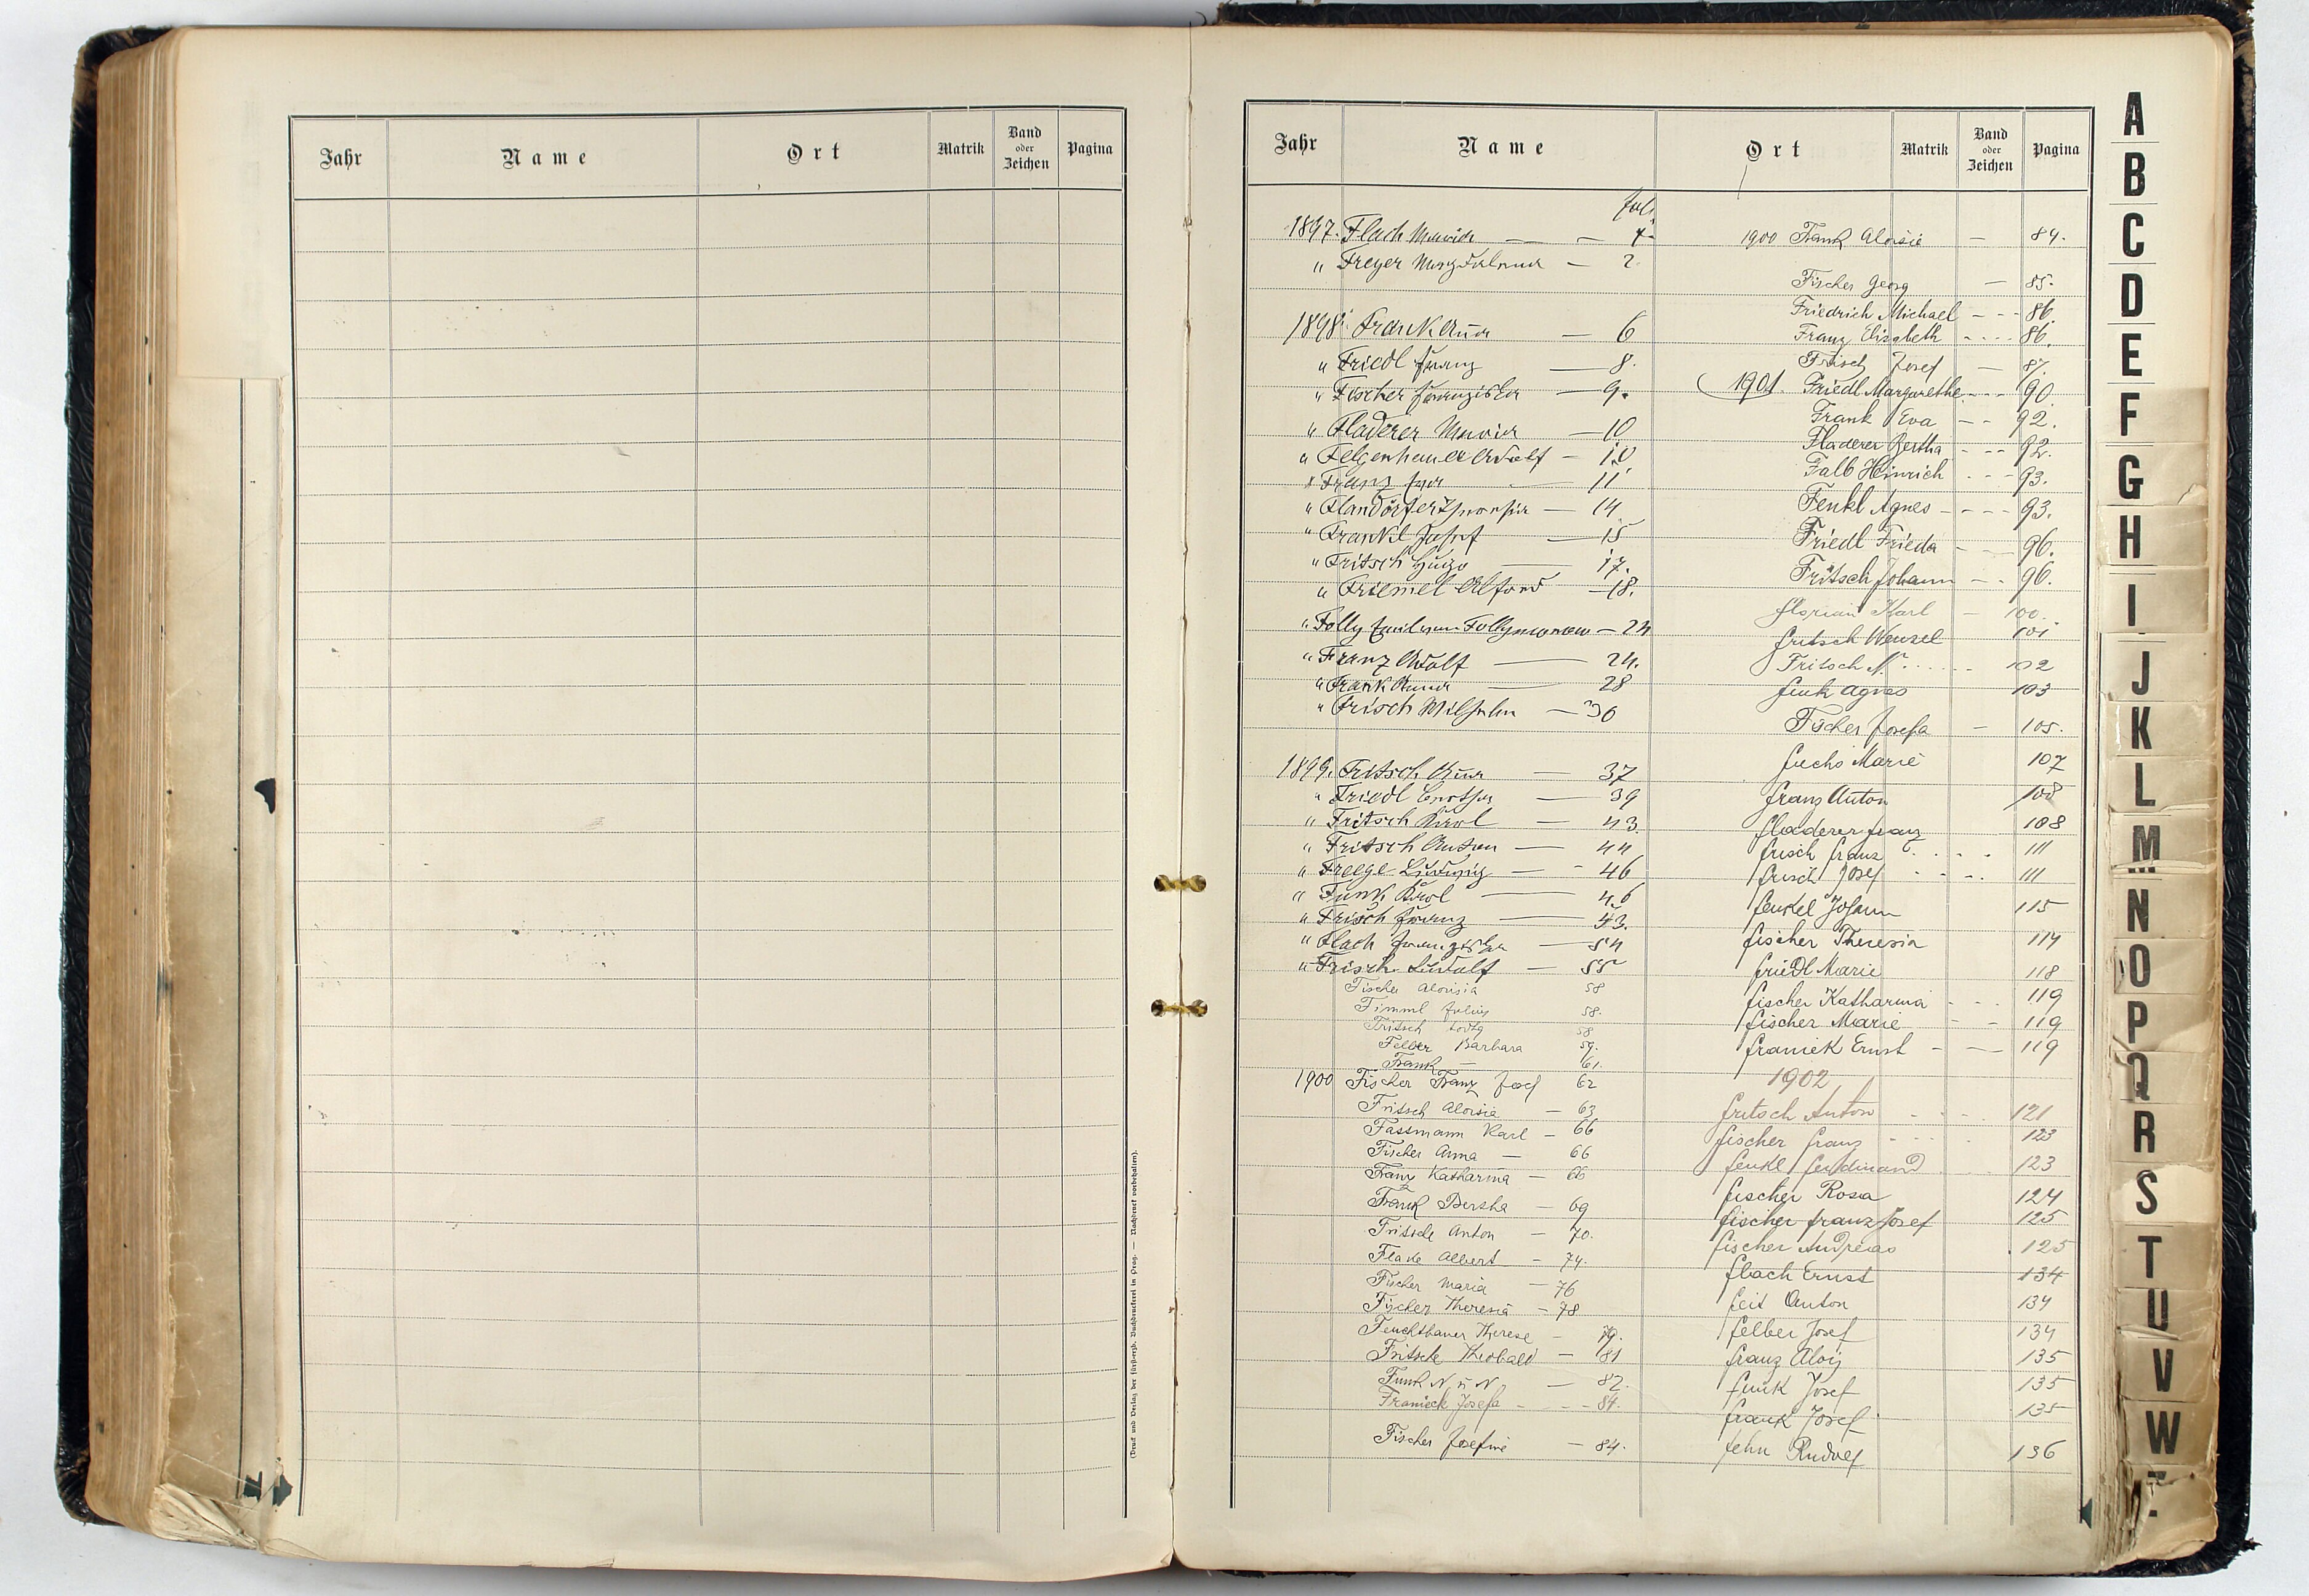 Jahr Name Ort Matrik Band oder Zeichen Pagina
(Druck und Verlag der fürsterzb. Buchdruckerei in Prag. — Nachdruck vorbehalten).
Jahr Name Ort Matrik Band oder Zeichen Pagina
fol.
1897. Flach Maria — —
" Freyer Magdalena — 2
1898 Frank Anna — 6
" Friedl Franz — 8.
" Fischer Franziska — 9.
" Fladerer Maria — 10
" Felgenhauer Adolf — 10.
" Franz — 11
" Flandörfer Theresia — 14
" Frankl Josef — 15
" Fritsch Hugo — 17.
" Friemel Alfred — 18.
" Folly — 24
" Franz Adolf — 24.
" Frank Anna — 28
" Frisch Wilhelm — 30
1899. Fritsch Anna — 37
" Friedl — 39
" Fritsch Karl — 43.
" Fritsch Anton — 44
" Freege Ludwig — 46
" Funk Karl — 46
" Frisch Franz — 43.
" Flach Franziska — 54
" Frisch Rudolf — 55
Fischer Aloisia 58
Fimml Julius 58.
Fritsch 58
Felber Barbara 59.
Frank — 61.
1900 Fischer Franz Josef 62
Fritsch Aloisia — 63
Fassmann Karl — 66
Fischer Anna — 66
Franz Katharina — 66
Frank Bertha — 69
Fritsch Anton — 70.
Albert — 74.
Fischer Maria — 76
Fischer Theresia — 78
Feuchtbauer Therese — 79.
Fritsch Theobald — 81
Funk N u N. — 82.
Franieck Josefa - - - 84.
Fischer Josefine — 84.
1900 Frank Aloisie — 84.
Fischer Georg — 85.
Friedrich Michael - - - 86.
Franz Elisabeth - - - - 86.
Frisch Josef — 87.
1901. Friedl Margarethe - - - 90.
Frank Eva - - 92.
Fladerer Bertha - - - 92.
Falb Heinrich - - - 93.
Fenkl Agnes - - - - 93.
Friedl Frieda - — 96.
Fritsch Johann - - 96.
Florian Karl — 100.
Fritsch Wenzel 101
Fritsch N. . . . . . . 102
Funk Agnes 103
Fischer Josefa — 105.
Fuchs Marie 107
Franz Anton 108
Fladerer Franz 108
Frisch Franz . . . . 111
Frisch Josef - - - - 111
Fenkel Johann 115
Fischer Theresia 114
Friedl Marie 118
Fischer Katharina - - - 119
Fischer Marie - - 119
Franiek Ernst - — 119
1902
Fritsch Anton - - - - 121
Fischer Franz - - - - 123
Fenkl Ferdinand . . . 123
Fischer Rosa 124
Fischer Franz Josef 125
Fischer Andreas . 125
Flach Ernst 134
Feit Anton 134
Felber Josef 134
Franz Alois 135
Funk Josef 135
Frank Josef 135
Fehn Rudolf 136
A
B
C
D
E
F
G
H
I
J
K
L
M
N
O
P
Q
R
S
T
U
V
W